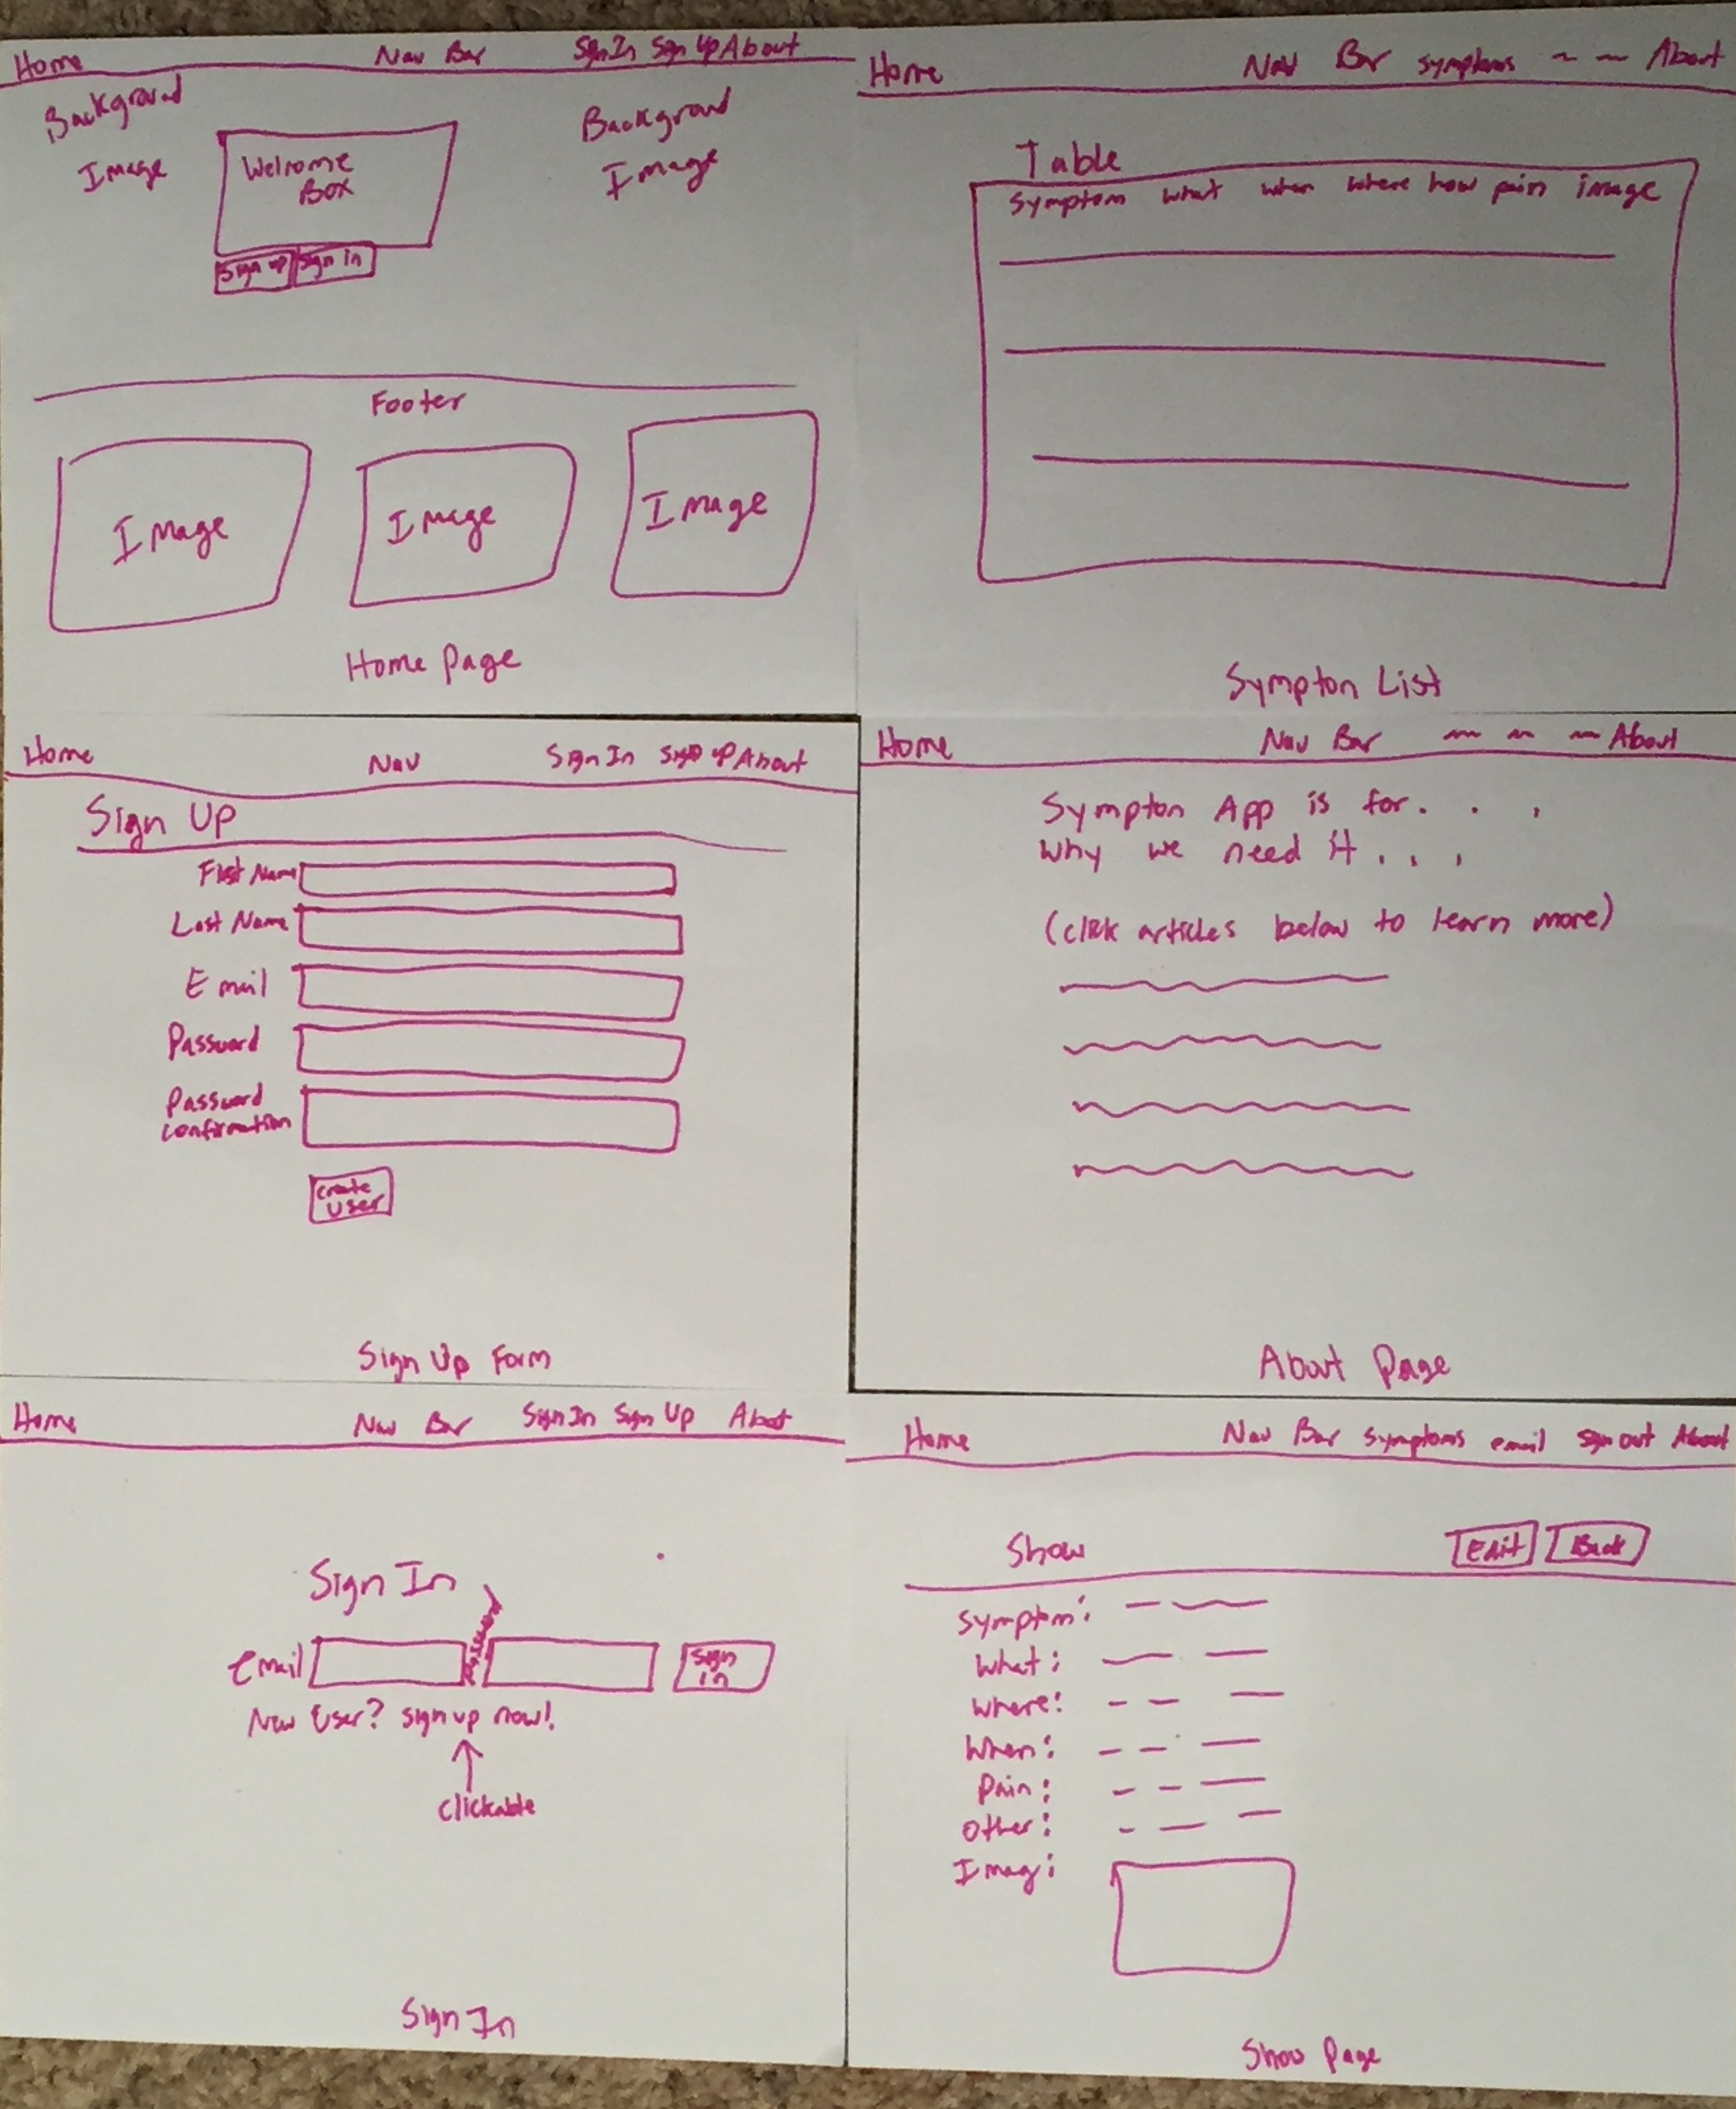 Home Nav Bar Sign In Sign Up About
Background
Image
Welcome
Box
Background
Image
Sign up Sign in
Footer
Image Image Image
Home Page
Home Nav Bar Symptoms About
Table
Symptom what when where how pain image
Sympton List
Home Nav Sign In Sign up About
Sign Up
First Name
Last Name
Email
Password
Password
Confirmation
Create
User
Sign Up Form
Home Nav Bar About
Sympton App is for . . .
Why we need it . . .
(click articles below to learn more)
About Page
Home Nav Bar Sign In Sign Up About
Sign In
Email
Sign
in
New User? sign up now!
Clickable
Sign In
Home Nav Bar Symptoms email sign out About
Show Edit Back
Symptom:
What:
Where:
When:
Pain:
Other:
Imag:
Show Page